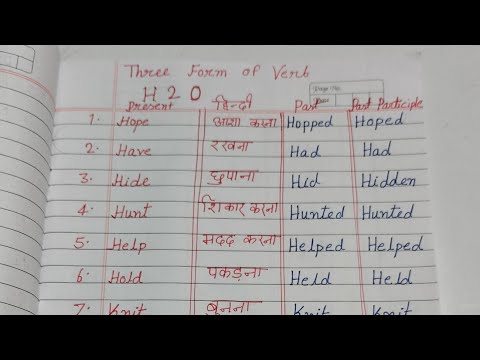 Three Form of Verb
Page No.
Date
H 2 O
Present हिन्दी Past Past Participle
1. Hope आशा करना Hopped Hoped
2. Have रखना Had Had
3. Hide छुपाना Hid Hidden
4. Hunt शिकार करना Hunted Hunted
5. Help मदद करना Helped Helped
6. Hold पकड़ना Held Held
7. Knit बुनना Knit Knit